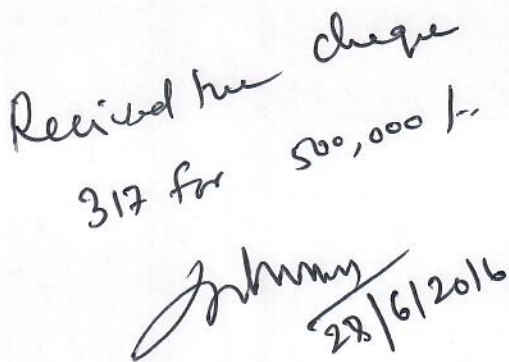 Recived the cheque
317 for 500,000/-
28/6/2016